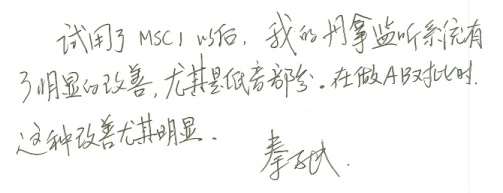 试用了MSC1以后，我的丹拿监听系统有
了明显的改善，尤其是低音部分。在做AB对比时，
这种改善尤其明显。